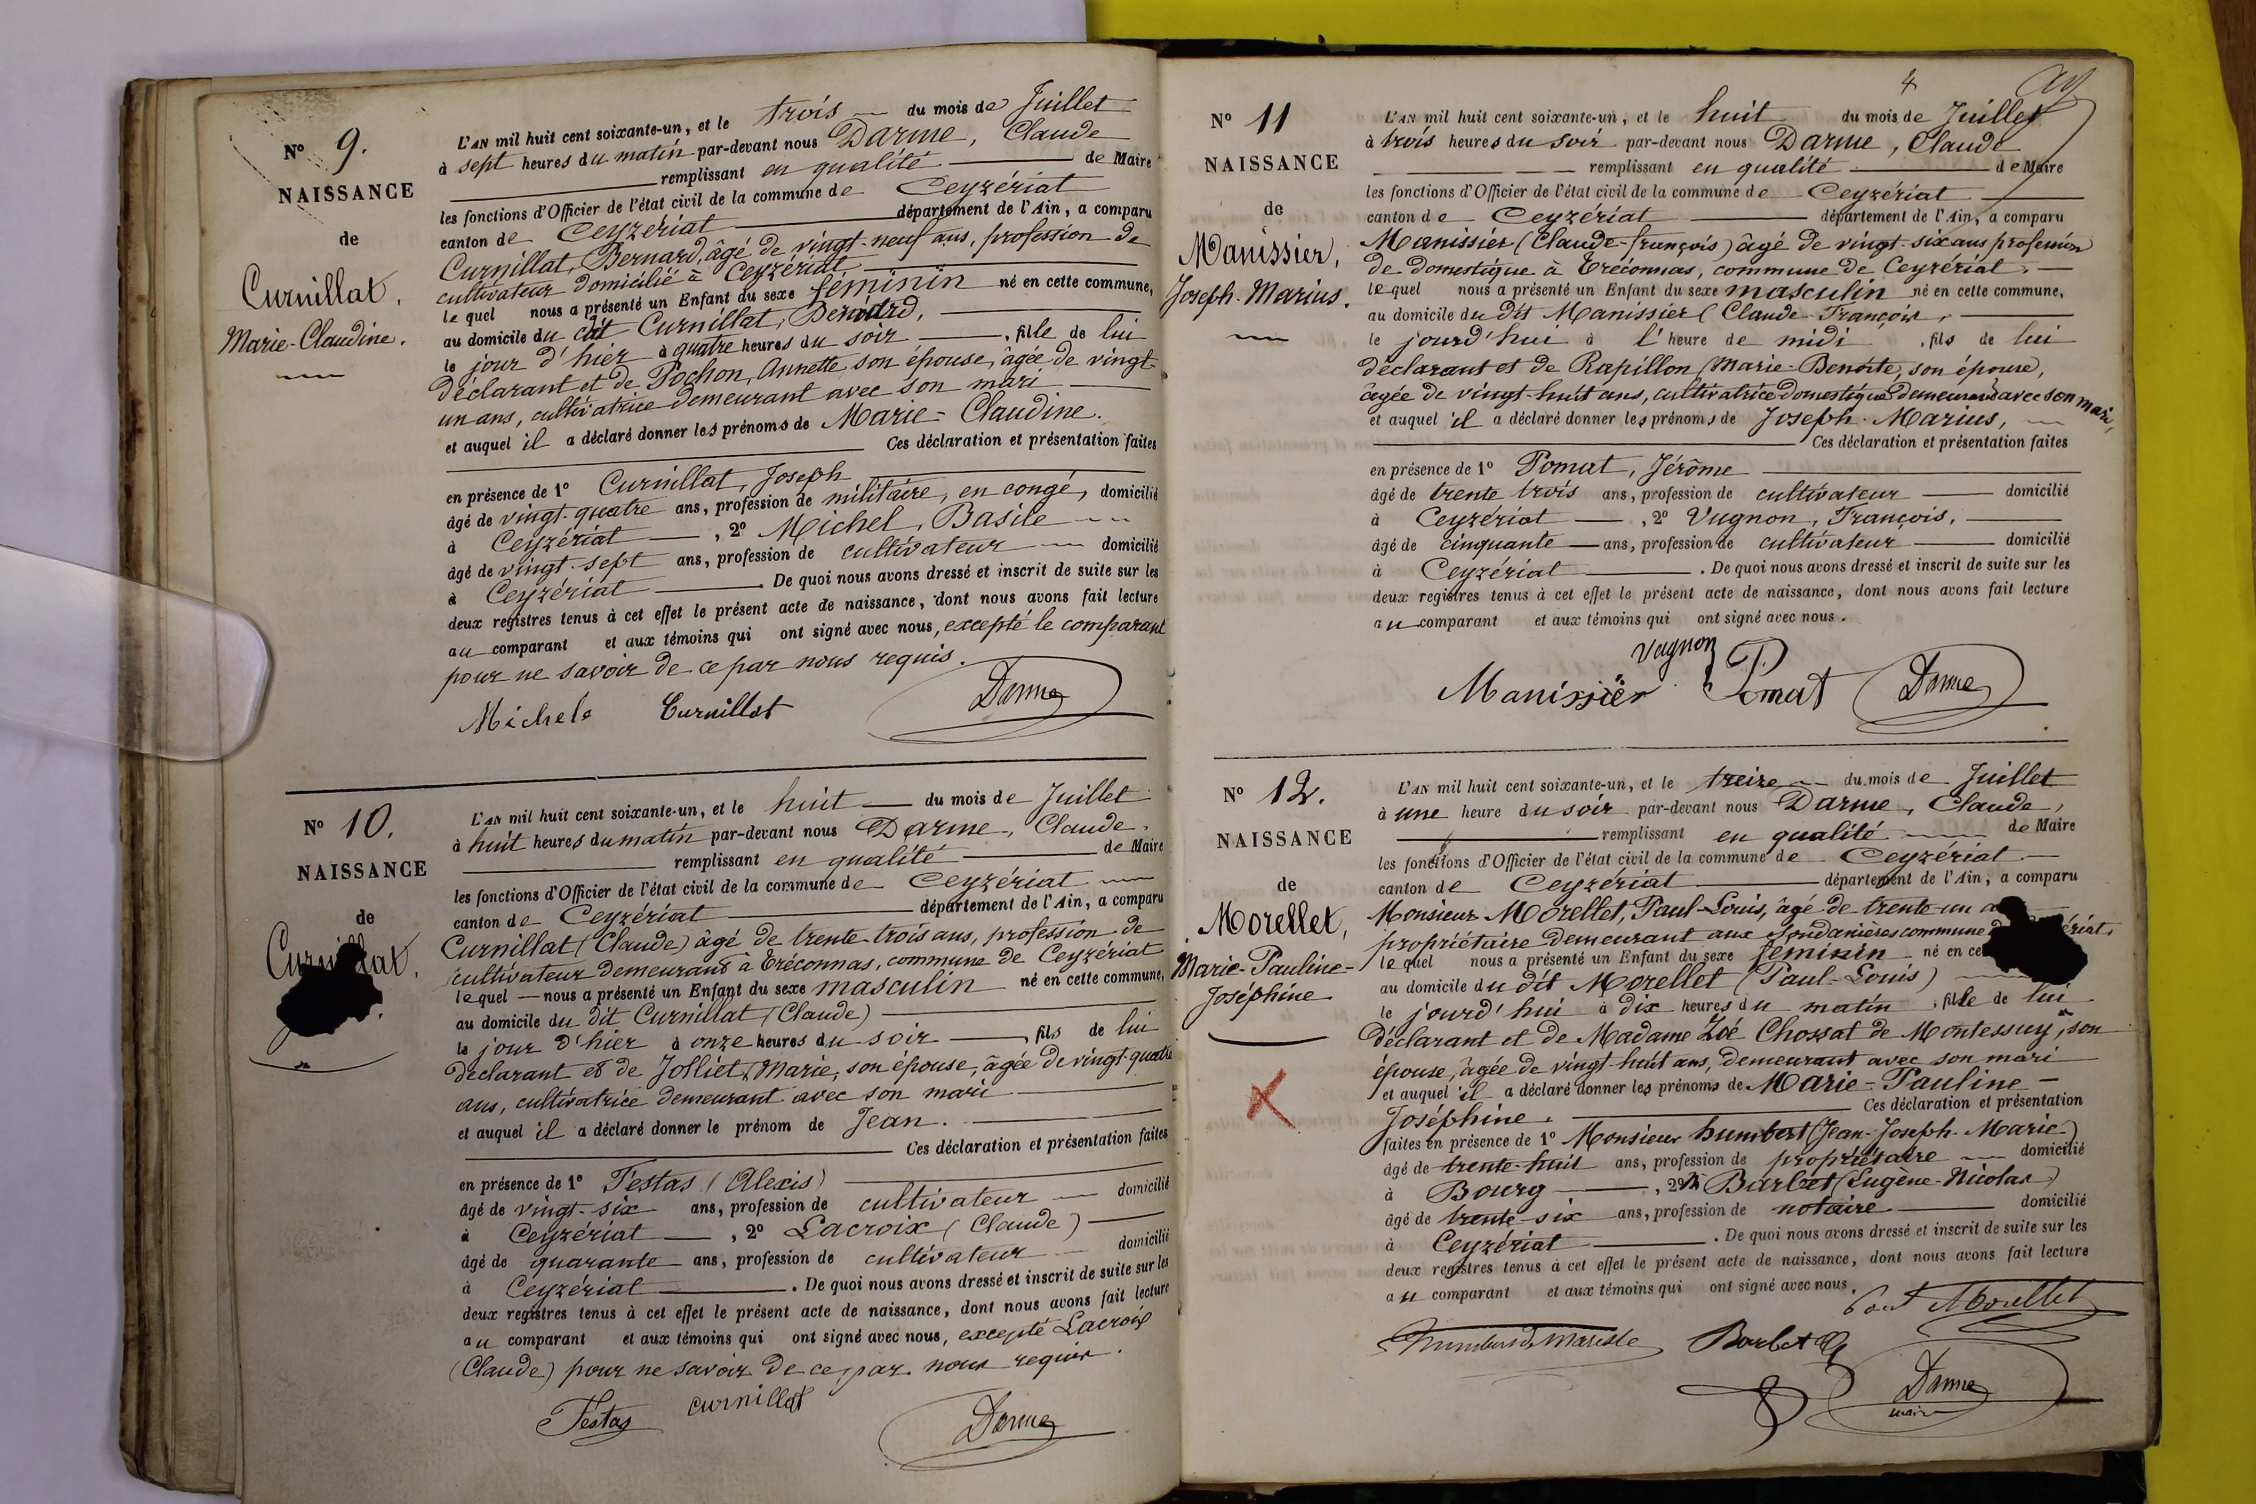 N° 9.
NAISSANCE
de
Curnillat,
Marie-Claudine.
L'AN mil huit cent soixante-un, et le trois du mois de Juillet
à sept heures du matin par-devant nous Darme, Claude
remplissant en qualité de Maire
les fonctions d'Officier de l'état civil de la commune de Ceyzériat
canton de Ceyzériat département de l'Ain, a comparu
Curnillat, Bernard, âgé de vingt-neuf ans, profession de
cultivateur domicilié à Ceyzériat
lequel nous a présenté un Enfant du sexe féminin né en cette commune,
au domicile du dit Curnillat, Bernard,
le jour d'hier à quatre heures du soir, fille de lui
déclarant et de Pochon, Annette son épouse, âgée de vingt-
un ans, cultivatrice demeurant avec son mari
et auquel il a déclaré donner les prénoms de Marie-Claudine.
Ces déclaration et présentation faites
en présence de 1° Curnillat, Joseph
âgé de vingt-quatre ans, profession de militaire, en congé, domicilié
à Ceyzériat, 2° Michel, Basile
âgé de vingt-sept ans, profession de cultivateur domicilié
à Ceyzériat. De quoi nous avons dressé et inscrit de suite sur les
deux registres tenus à cet effet le présent acte de naissance, dont nous avons fait lecture
au comparant et aux témoins qui ont signé avec nous, excepté le comparant
pour ne savoir de ce par nous requis.
Michel Curnillat Darme
N° 10.
NAISSANCE
de
Curnillat,
L'AN mil huit cent soixante-un, et le huit du mois de Juillet
à huit heures du matin par-devant nous Darme, Claude,
remplissant en qualité de Maire
les fonctions d'Officier de l'état civil de la commune de Ceyzériat
canton de Ceyzériat département de l'Ain, a comparu
Curnillat (Claude) âgé de trente-trois ans, profession de
cultivateur demeurant à Tréconnas, commune de Ceyzériat
lequel nous a présenté un Enfant du sexe masculin né en cette commune,
au domicile du dit Curnillat (Claude)
le jour d'hier à onze heures du soir, fils de lui
déclarant et de Jolliet, Marie, son épouse, âgée de vingt-quatre
ans, cultivatrice demeurant avec son mari
et auquel il a déclaré donner le prénom de Jean.
Ces déclaration et présentation faites
en présence de 1° Testas (Alexis)
âgé de vingt-six ans, profession de cultivateur domicilié
à Ceyzériat, 2° Lacroix (Claude)
âgé de quarante ans, profession de cultivateur domicilié
à Ceyzériat. De quoi nous avons dressé et inscrit de suite sur les
deux registres tenus à cet effet le présent acte de naissance, dont nous avons fait lecture
au comparant et aux témoins qui ont signé avec nous, excepté Lacroix
(Claude) pour ne savoir de ce par nous requis.
Testas curnillat Darme
4
N° 11
NAISSANCE
de
Manissier,
Joseph-Marius.
L'AN mil huit cent soixante-un, et le huit du mois de Juillet
à trois heures du soir par-devant nous Darme, Claude
remplissant en qualité de Maire
les fonctions d'Officier de l'état civil de la commune de Ceyzériat
canton de Ceyzériat département de l'Ain, a comparu
Manissier (Claude-françois) âgé de vingt-six ans profession
de domestique à Tréconnas, commune de Ceyzériat,
lequel nous a présenté un Enfant du sexe masculin né en cette commune,
au domicile du dit Manissier (Claude-François,
le jourd'hui à l'heure de midi, fils de lui
déclarant et de Rapillon (Marie-Benoite, son épouse,
âgée de vingt-huit ans, cultivatrice domestique demeurant avec son mari,
et auquel il a déclaré donner les prénoms de Joseph-Marius,
Ces déclaration et présentation faites
en présence de 1° Pomat, Jérôme
âgé de trente trois ans, profession de cultivateur domicilié
à Ceyzériat, 2° Vugnon, François,
âgé de cinquante ans, profession de cultivateur domicilié
à Ceyzériat. De quoi nous avons dressé et inscrit de suite sur les
deux registres tenus à cet effet le présent acte de naissance, dont nous avons fait lecture
au comparant et aux témoins qui ont signé avec nous.
Vugnon
Manissier Pomat Darme
N° 12.
NAISSANCE
de
Morellet,
Marie-Pauline-
Joséphine
L'AN mil huit cent soixante-un, et le treize du mois de Juillet
à une heure du soir par-devant nous Darme, Claude,
remplissant en qualité de Maire
les fonctions d'Officier de l'état civil de la commune de Ceyzériat
canton de Ceyzériat département de l'Ain, a comparu
Monsieur Morellet, Paul-Louis, âgé de trente-un
propriétaire demeurant aux Soudanières commune
lequel nous a présenté un Enfant du sexe féminin né en
au domicile du dit Morellet (Paul-Louis)
le jourd'hui à dix heures du matin, fille de lui
déclarant et de Madame Zoé Chossat de Montessuy, son
épouse, âgée de vingt-huit ans, demeurant avec son mari
et auquel il a déclaré donner les prénoms de Marie-Pauline-
Joséphine. Ces déclaration et présentation
faites en présence de 1° Monsieur humbert (Jean-Joseph-Marie-)
âgé de trente-huit ans, profession de propriétaire domicilié
à Bourg, 2° M Barbet (Eugène-Nicolas)
âgé de trente-six ans, profession de notaire domicilié
à Ceyzériat. De quoi nous avons dressé et inscrit de suite sur les
deux registres tenus à cet effet le présent acte de naissance, dont nous avons fait lecture
au comparant et aux témoins qui ont signé avec nous.
Paul Morellet
Barbet
Darme
maire